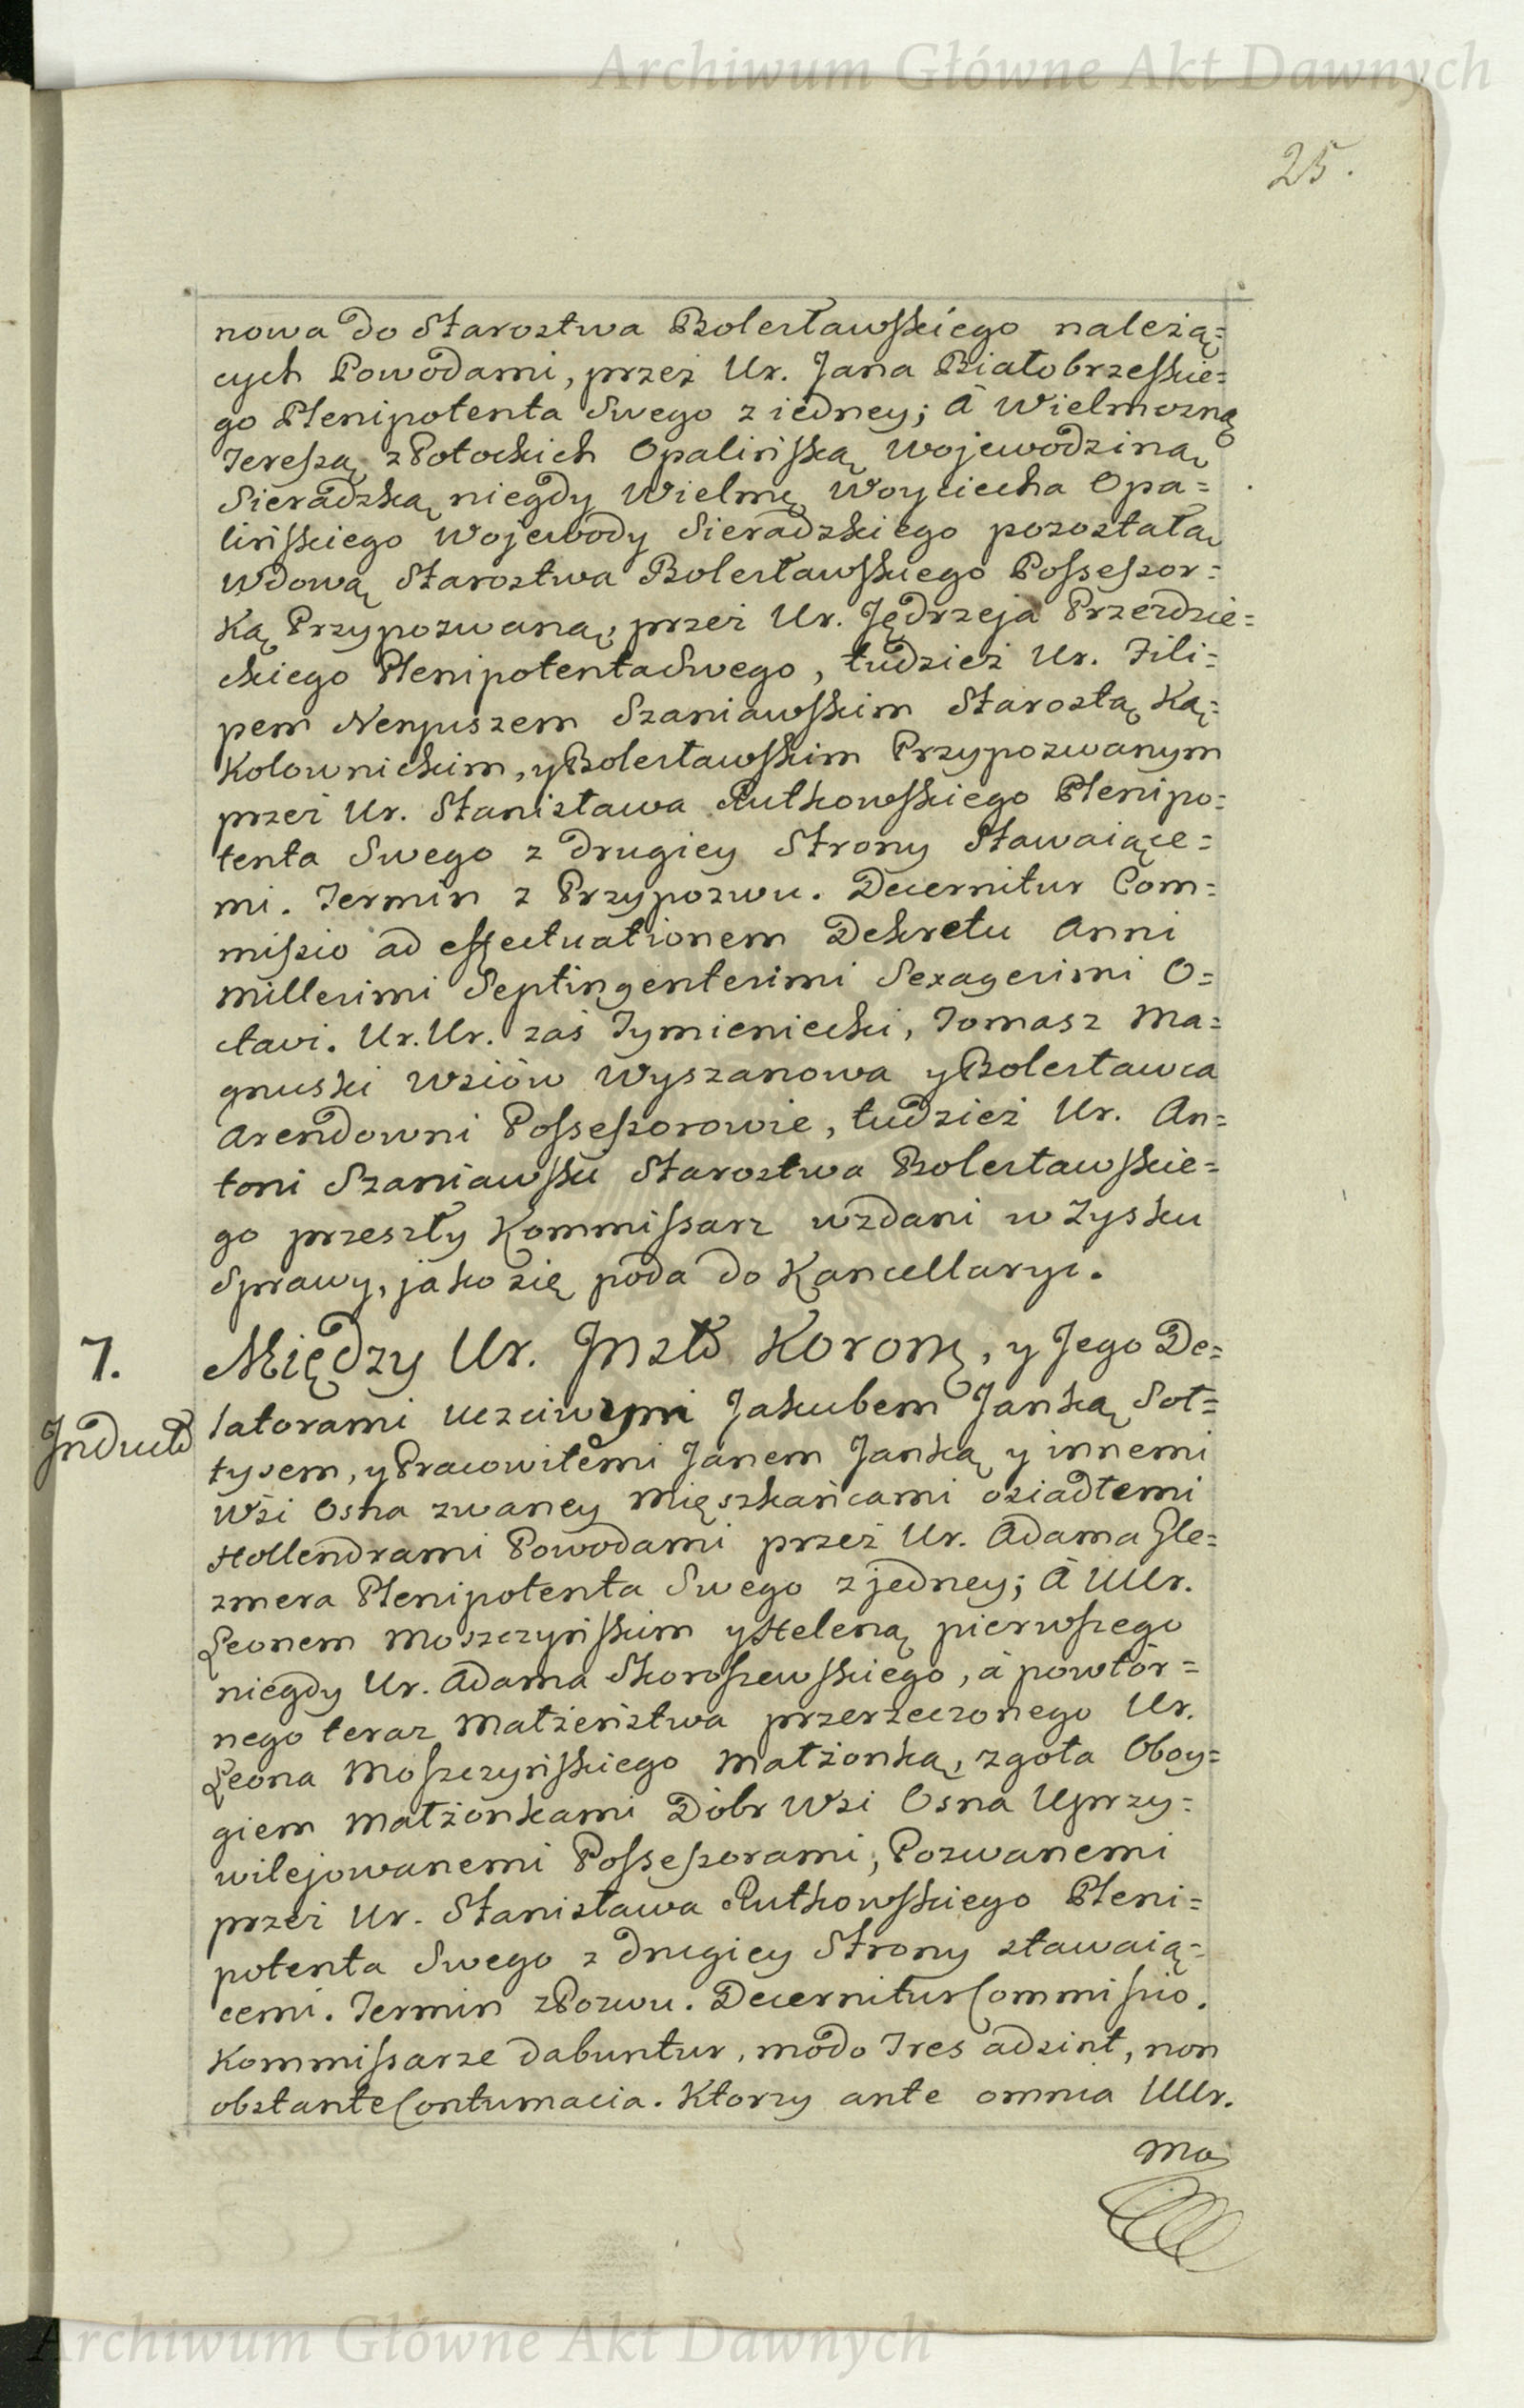 Archiwum Główne Akt Dawnych
25.
nowa do Starostwa Bolesławskiego należą=
cych Powodami, przez Ur. Jana Białobrzeskie=
go Plenipotenta Swego z iedney; A Wielmożną
Teressą z Potockich Opalińską Wojewodziną
Sieradzką niegdy Wielmę Woyciecha Opa=
lińskiego Wojewody Sieradzkiego pozostałą
Wdową Starostwa Bolesławskiego Possessor=
ką Przypozwaną, przez Ur. Jędrzeja Przezdzie=
ckiego Plenipotenta Swego, tudzież Ur. Fili=
pem Neryuszem Szaniawskim Starostą Ką=
kolownickim, y Bolesławskim Przypozwanym
przez Ur. Stanisława Rutkowskiego Plenipo=
tenta Swego z drugiey Strony Stawaiące=
mi. Termin z Przypozwu. Decernitur Com=
missio ad effectuationem Dekretu Anni
Millesimi Septingentesimi Sexagesimi O=
ctavi. Ur. Ur. zaś Tymieniecki, Tomasz Ma=
gnuski Wsiów Wyszanowa y Bolesławca
Arendowni Possessorowie, tudzież Ur. An=
toni Szaniawski Starostwa Bolesławskie=
go przeszły Kommissarz wzdani w Zysku
Sprawy, jako się poda do Kancellaryi.
7. Między Ur. Insto Koronę, y Jego De=
Induct latorami uczciwymi Jakubem Janką Soł=
tysem, y Pracowitemi Janem Janką y innemi
Wsi Osna zwaney Mięszkańcami osiadłemi
Hollendrami Powodami przez Ur. Adama Gle=
zmera Plenipotenta Swego z jedney; A UUr.
Leonem Moszczyńskim y Heleną pierwszego
niegdy Ur. Adama Skoroszewskiego, a powtór=
nego teraz Małżeństwa przerzeczonego Ur.
Leona Moszczyńskiego Małżonką, zgoła Oboy=
giem Małżonkami Dóbr Wsi Osna Uprzy=
wilejowanemi Possessorami, Pozwanemi
przez Ur. Stanisława Rutkowskiego Pleni=
potenta Swego z drugiey Strony stawaią=
cemi. Termin z Pozwu. Decernitur Commissio.
Kommissarze dabuntur, modo Tres adsint, non
obstante Contumacia. Ktorzy ante omnia UUr.
Mo
Archiwum Główne Akt Dawnych